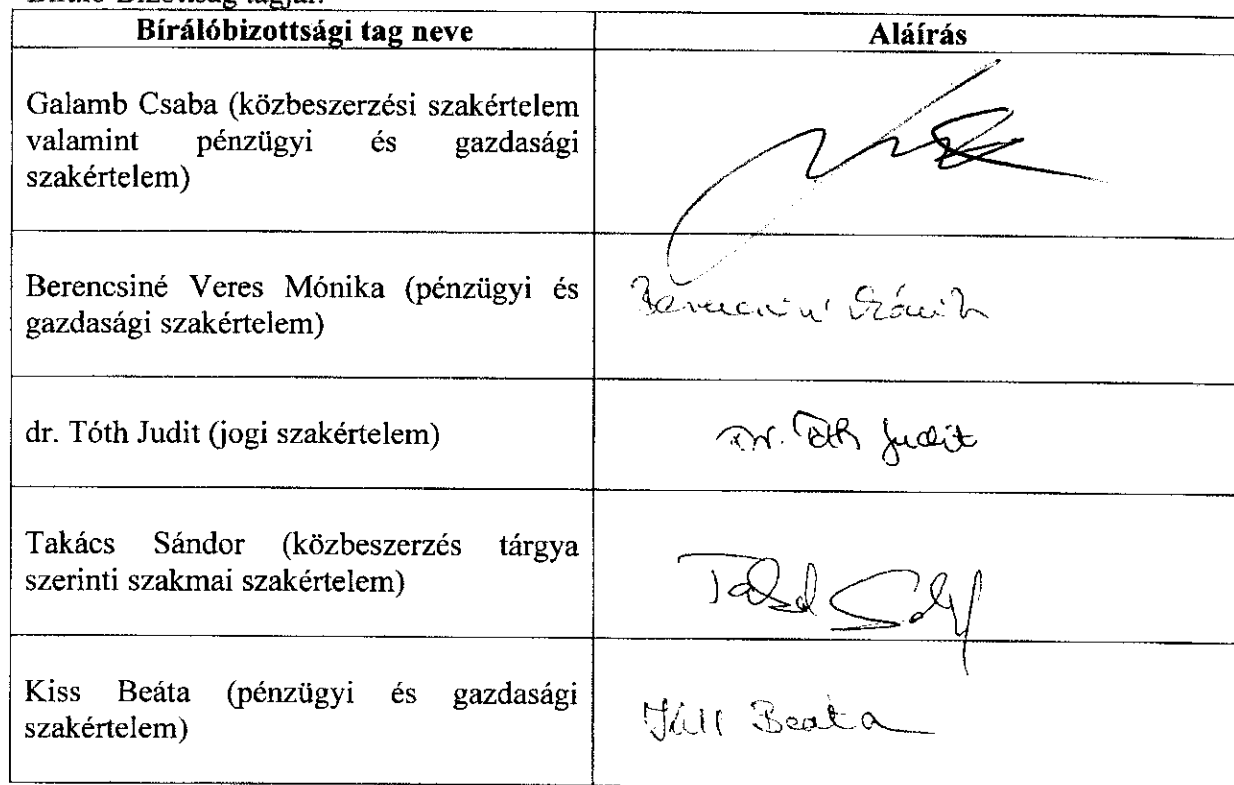 Bírálóbizottsági tag neve
Aláírás
Galamb Csaba (közbeszerzési szakértelem
valamint pénzügyi és gazdasági
szakértelem)
Berencsiné Veres Mónika (pénzügyi és
gazdasági szakértelem)
dr. Tóth Judit (jogi szakértelem)
Dr. Tóth Judit
Takács Sándor (közbeszerzés tárgya
szerinti szakmai szakértelem)
Kiss Beáta (pénzügyi és gazdasági
szakértelem)
Beata